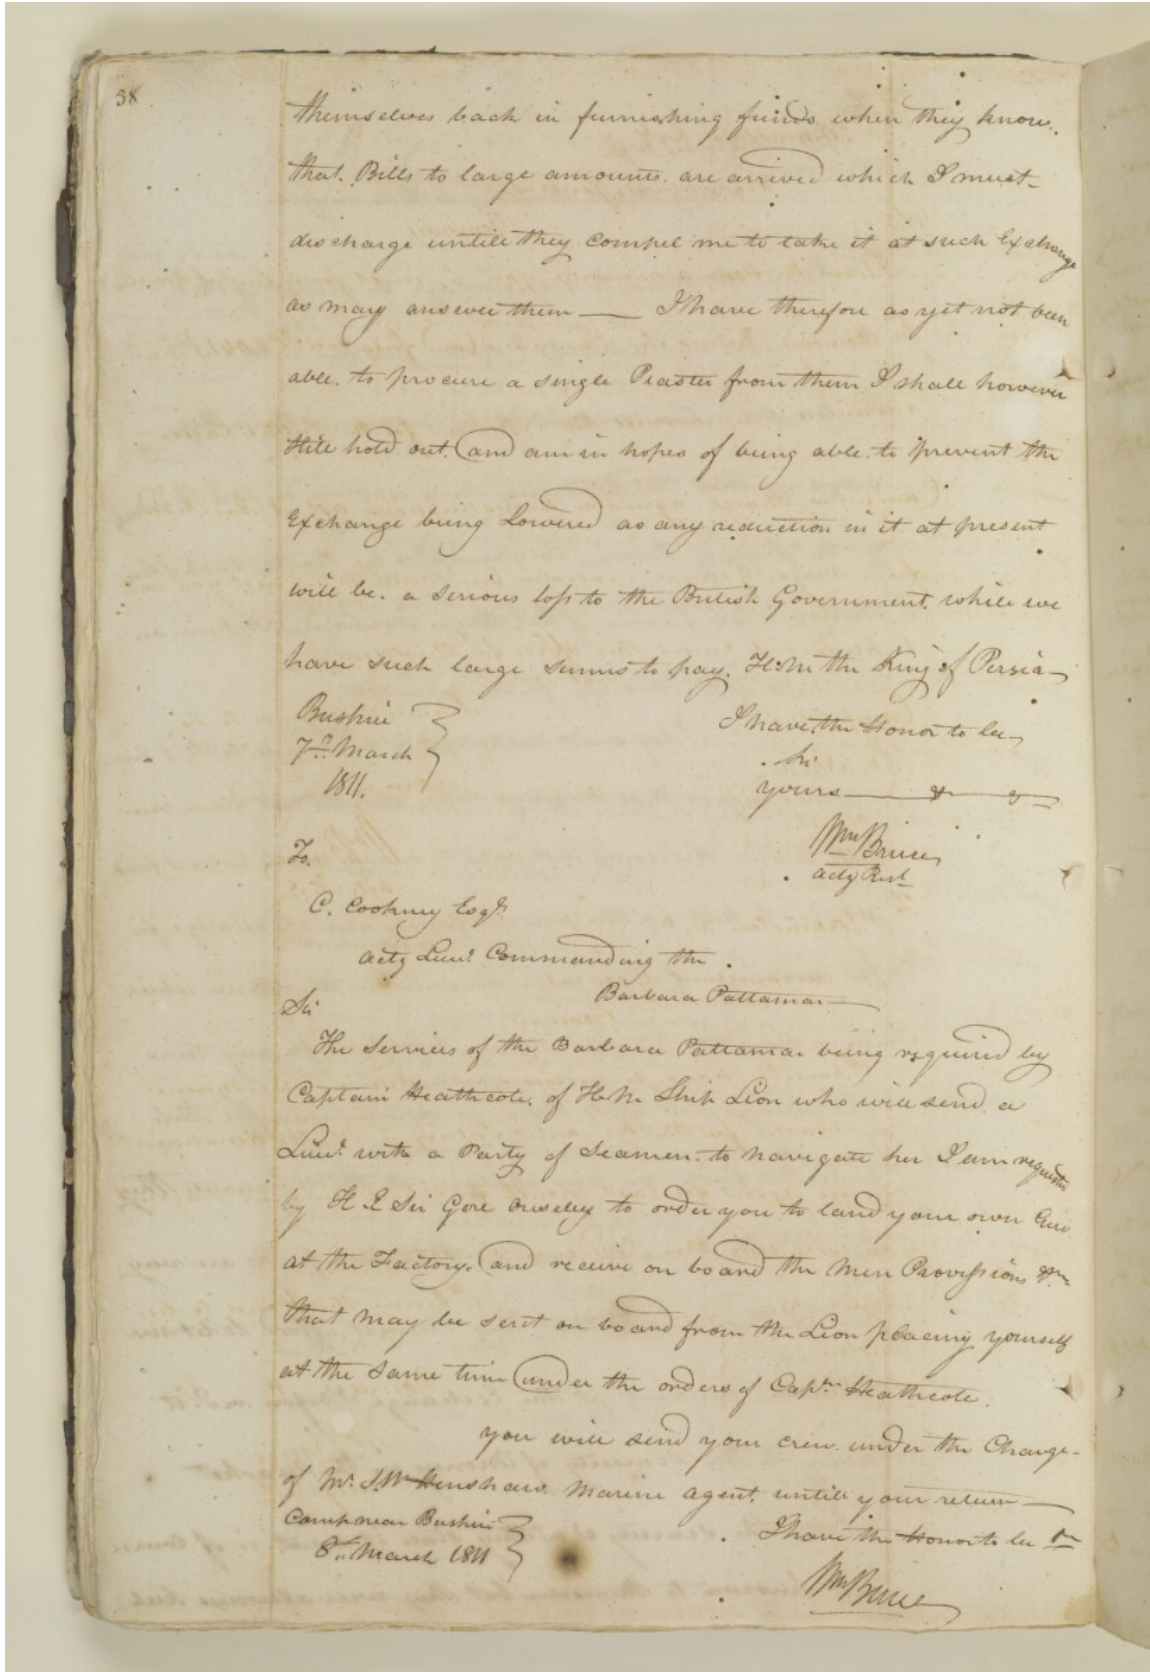 58
themselves back in furnishing funds when they know
that Bills to large amounts are arrived which I must
discharge untill they compel me to take it at such Exchange
as may answer them — I have therefore as yet not been
able to procure a single Piaster from them I shall however
still hold out and am in hopes of being able to prevent the
Exchange being Lowered as any reduction in it at present
will be a serious loss to the British Government while we
have such large sums to pay H. M. the King of Persia —
Bushire
7th March
1811.
I have the Honor to be
Sir
yours — & — &
Wm Bruce
actg Rest
To
C. Cookney Esqr
actg Lieut Commanding the
Barbara Pattamar
Sir
The Services of the Barbara Pattamar being required by
Captain Heathcote of H. M. Ship Lion who will send a
Lieut with a Party of Seamen to navigate her I am requested
by H. E Sir Gore Ouseley to order you to land your own Crew
at the Factory and receive on board the Men Provisions &c
that may be sent on board from the Lion placing yourself
at the same time under the orders of Captn Heathcote.
you will send your crew under the Charge
of Mr. J. W. Henshaw Marine Agent untill your return —
Camp near Bushire
8th March 1811
I have the Honor to be &c
Wm Bruce